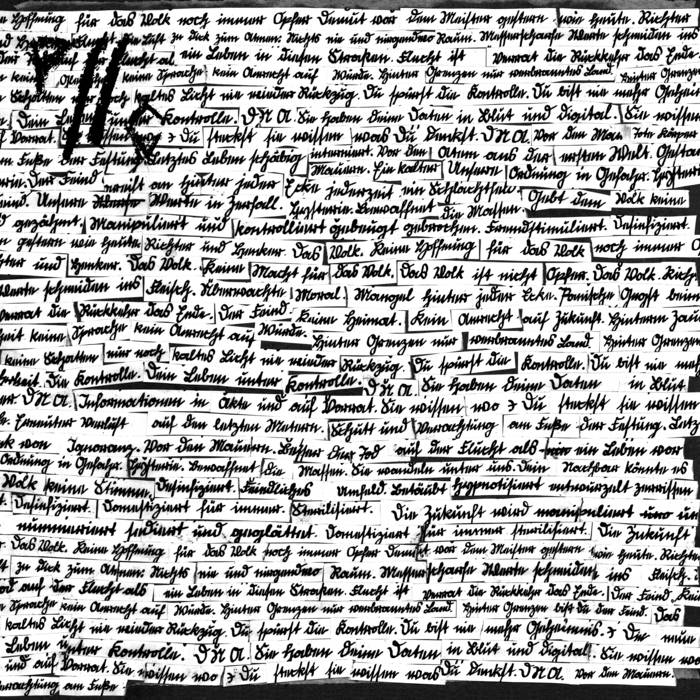 Hoffnung für das Volk noch immer Opfer Demut vor dem Meister gestern wie heute. Richter
Flucht die Luft zu dick zum Atmen. Nichts nie und nirgendwo Raum. Messerscharfe Werte schneiden ins
Der Flucht als ein Leben in diesen Straßen. Flucht ist Verrat die Rückkehr das Ende.
keine keine Sprache kein Anrecht auf Würde. Hinter Grenzen nur verbranntes Land. Hinter Grenzen
Schatten nur noch kaltes Licht nie wieder Rückzug. Du spürst die Kontrolle. Du bist nie mehr Geheim
Dein Leben unter Kontrolle. DNA. Sie haben deine Daten in Blut und digital. Sie wissen
Vorrat. Sie wissen wo > Du steckst sie wissen was Du denkst. DNA. Vor den Mau Tote Körper
am Fuße der Festung letztes Leben schäbig interniert. Vor den Atem aus der ersten Welt. Gesta
Der Feind Mauern. Ein kalter Unsere Ordnung in Gefahr. Hysterie
kommt am hinter jeder Ecke jederzeit ein Schlachtfeld. Gebt dem Volk keine
Feind. Unsere Werte Werte in Zerfall. Hysterie. Bewaffnet die Massen.
gezähmt. Manipuliert und kontrolliert gebeugt gebrochen. Fremdstimuliert. Desinfiziert.
gestern wie heute Richter und Henker. Das Volk. Keine Hoffnung für das Volk noch immer O
ter und Henker. Das Volk. Keine Macht für das Volk. Das Volk ist nicht Opfer. Das Volk. Rich
Werte schneiden ins Fleisch. Überwachte Moral. Mangel hinter jeder Ecke. Panische Angst bei
Verrat die Rückkehr das Ende. Der Feind. keine Heimat. Kein Anrecht auf Zukunft. Hinterm Zau
heit keine Sprache kein Anrecht auf Würde. Hinter Grenzen nur verbranntes Land. Hinter Grenzen
keine Schatten nur noch kaltes Licht nie wieder Rückzug. Du spürst die Kontrolle. Du bist nie meh
heit. Die Kontrolle. Dein Leben unter Kontrolle. DNA. Sie haben deine Daten in Blut
er DNA. Informationen in Akte und auf Vorrat. Sie wissen wo > Du steckst sie wissen
Erneuter Verlust auf den letzten Metern. Schutt und Verachtung am Fuße der Festung. Letz
von Ignoranz. Vor den Mauern. Besser der Tod auf der Flucht als ein Leben vor
Ordnung in Gefahr. Hysterie. Bewaffnet die Massen. Sie wandeln unter uns. Dein Nachbar könnte es
Volk keine Stimme. Desinfiziert. Feindliches Umfeld. Betäubt hypnotisiert entwurzelt zerrissen
Desinfiziert. Domestiziert für immer. Sterilisiert. Die Zukunft wird manipuliert un
nummeriert sediert und geglättet. Domestiziert für immer sterilisiert. Die Zukunft
Das Volk. Keine Hoffnung für das Volk noch immer Opfer Demut vor dem Meister gestern wie heute. Richte
ft zu dick zum Atmen. Nichts nie und nirgendwo Raum. Messerscharfe Werte schneiden ins Fleisch.
od auf der Flucht als ein Leben in diesen Straßen. Flucht ist Verrat die Rückkehr das Ende. Der Feind. Kei
Sprache kein Anrecht auf Würde. Hinter Grenzen nur verbranntes Land. Hinter Grenzen bist du der Feind. Das
kaltes Licht nie wieder Rückzug. Du spürst die Kontrolle. Du bist nie mehr Geheimnis. > Die
Leben unter Kontrolle. DNA. Sie haben deine Daten in Blut und digital. Sie wissen
und auf Vorrat. Sie wissen wo > Du steckst sie wissen was Du denkst. DNA. Vor den Mauern.
Verachtung am Fuße